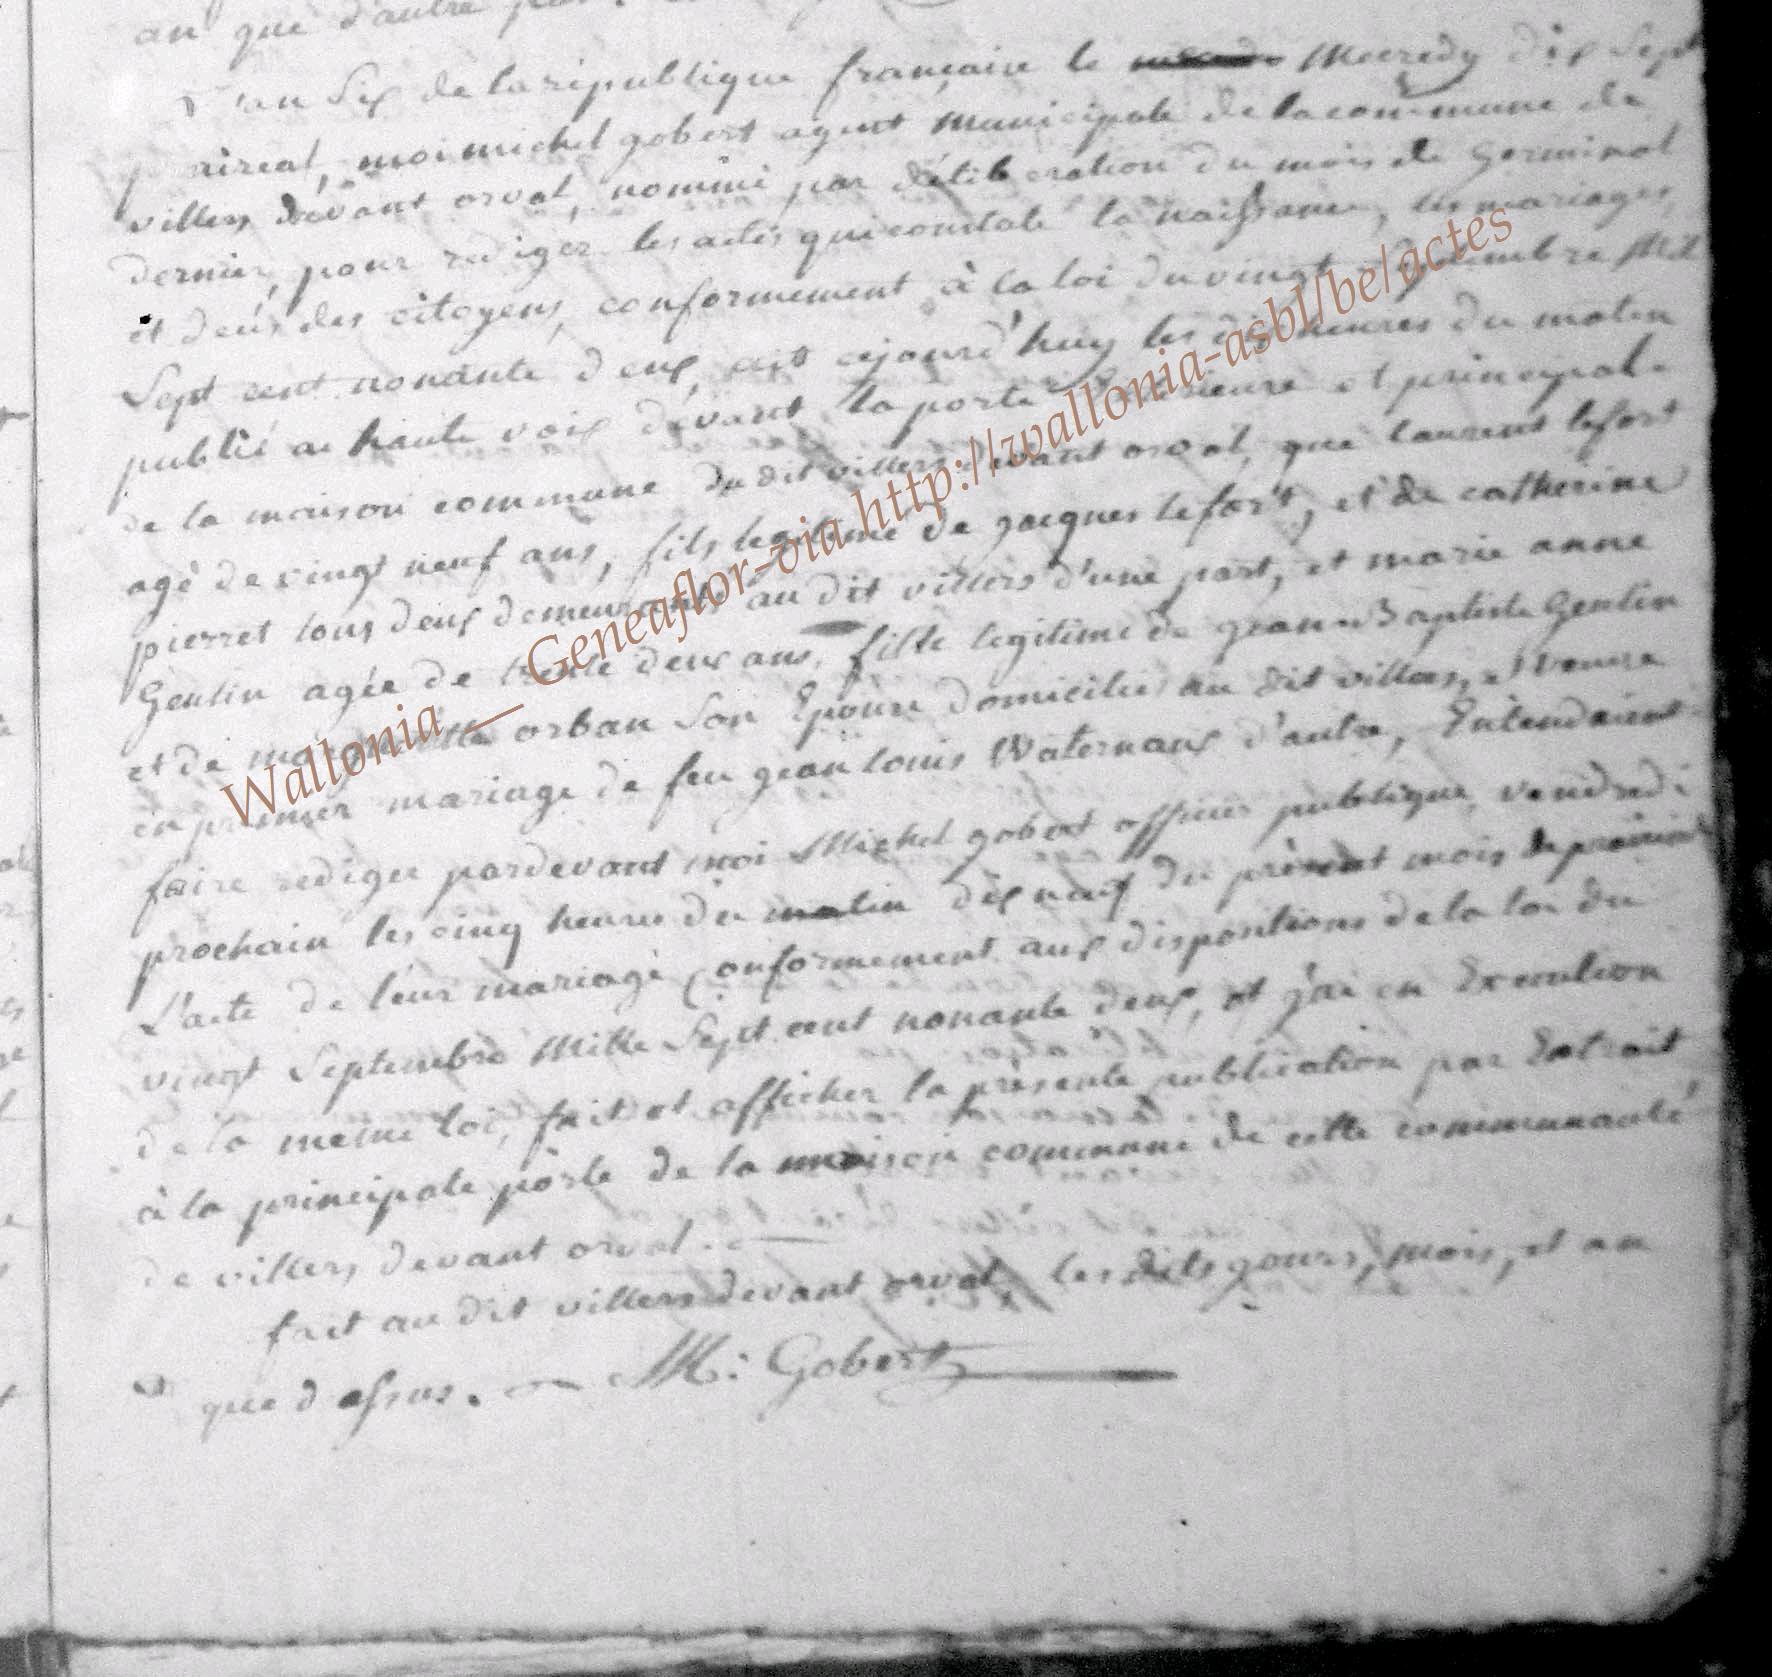 an que d'autre part.
L'an Six de la république française le Mecredy dix Sept
prairéal, moi michel gobert agent municipale de la commune de
villers devant orval, nommé par délibération du mois de Germinal
dernier, pour rediger les actes qui constate la naissance, les mariages
et decés des citoyens, conformement à la loi du vingt Septembre Mil
Sept cent nonante deux, ait ajourd'huy les dix heures du matin
publié a haute voix devant la porte et principale
de la maison commune du dit villers devant orval, que laurent lefort
agé de vingt neuf ans, fils legitime de jacques lefort, et de catherine
pierret tous deux demeurants au dit villers d'une part, et marie anne
Gentin agée de trente deux ans, fille legitime de jean Baptiste Gentin
et de orban Son Epouse domiciliés au dit villers, et veuve
en premier mariage de feu jean louis Waternaux d'autre, Entendaient
faire rediger pardevant moi Michel gobert officier publique vendredi
prochain les cinq heures du matin dix neuf du présent mois de prairial
L'acte de leur mariage Conformement aux dispositions de la loi du
vingt Septembre Mille Sept cent nonante deux, et j'ai en Execution
de la meme loi, fait et afficher la présente publication par Extrait
à la principale porte de la maison commune de cette communauté
de villers devant orval.
fait au dit villers devant orval, les dits jours, mois, et an
que dessus. M: Gobert
Wallonia __ Geneaflor-via http://wallonia-asbl/be/actes